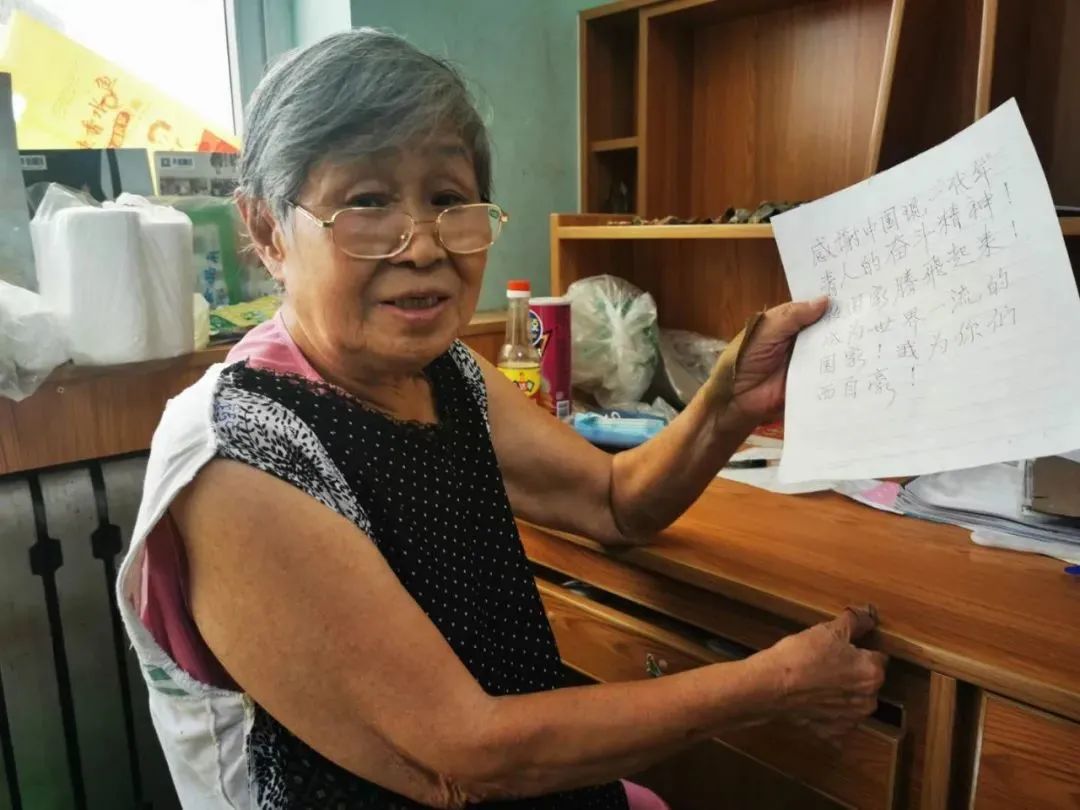 感谢中国现二代年
青人的奋斗精神！
国家腾飛起来！
成为世界一流的
国家！我为你们
而自豪！